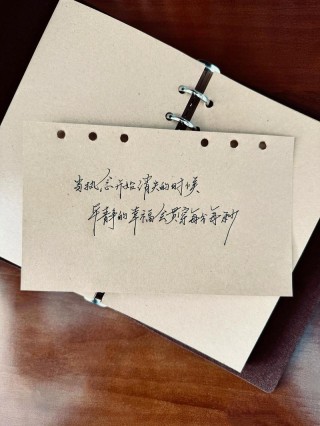 当执念开始消失的时候
平静的幸福会贯穿每分每秒